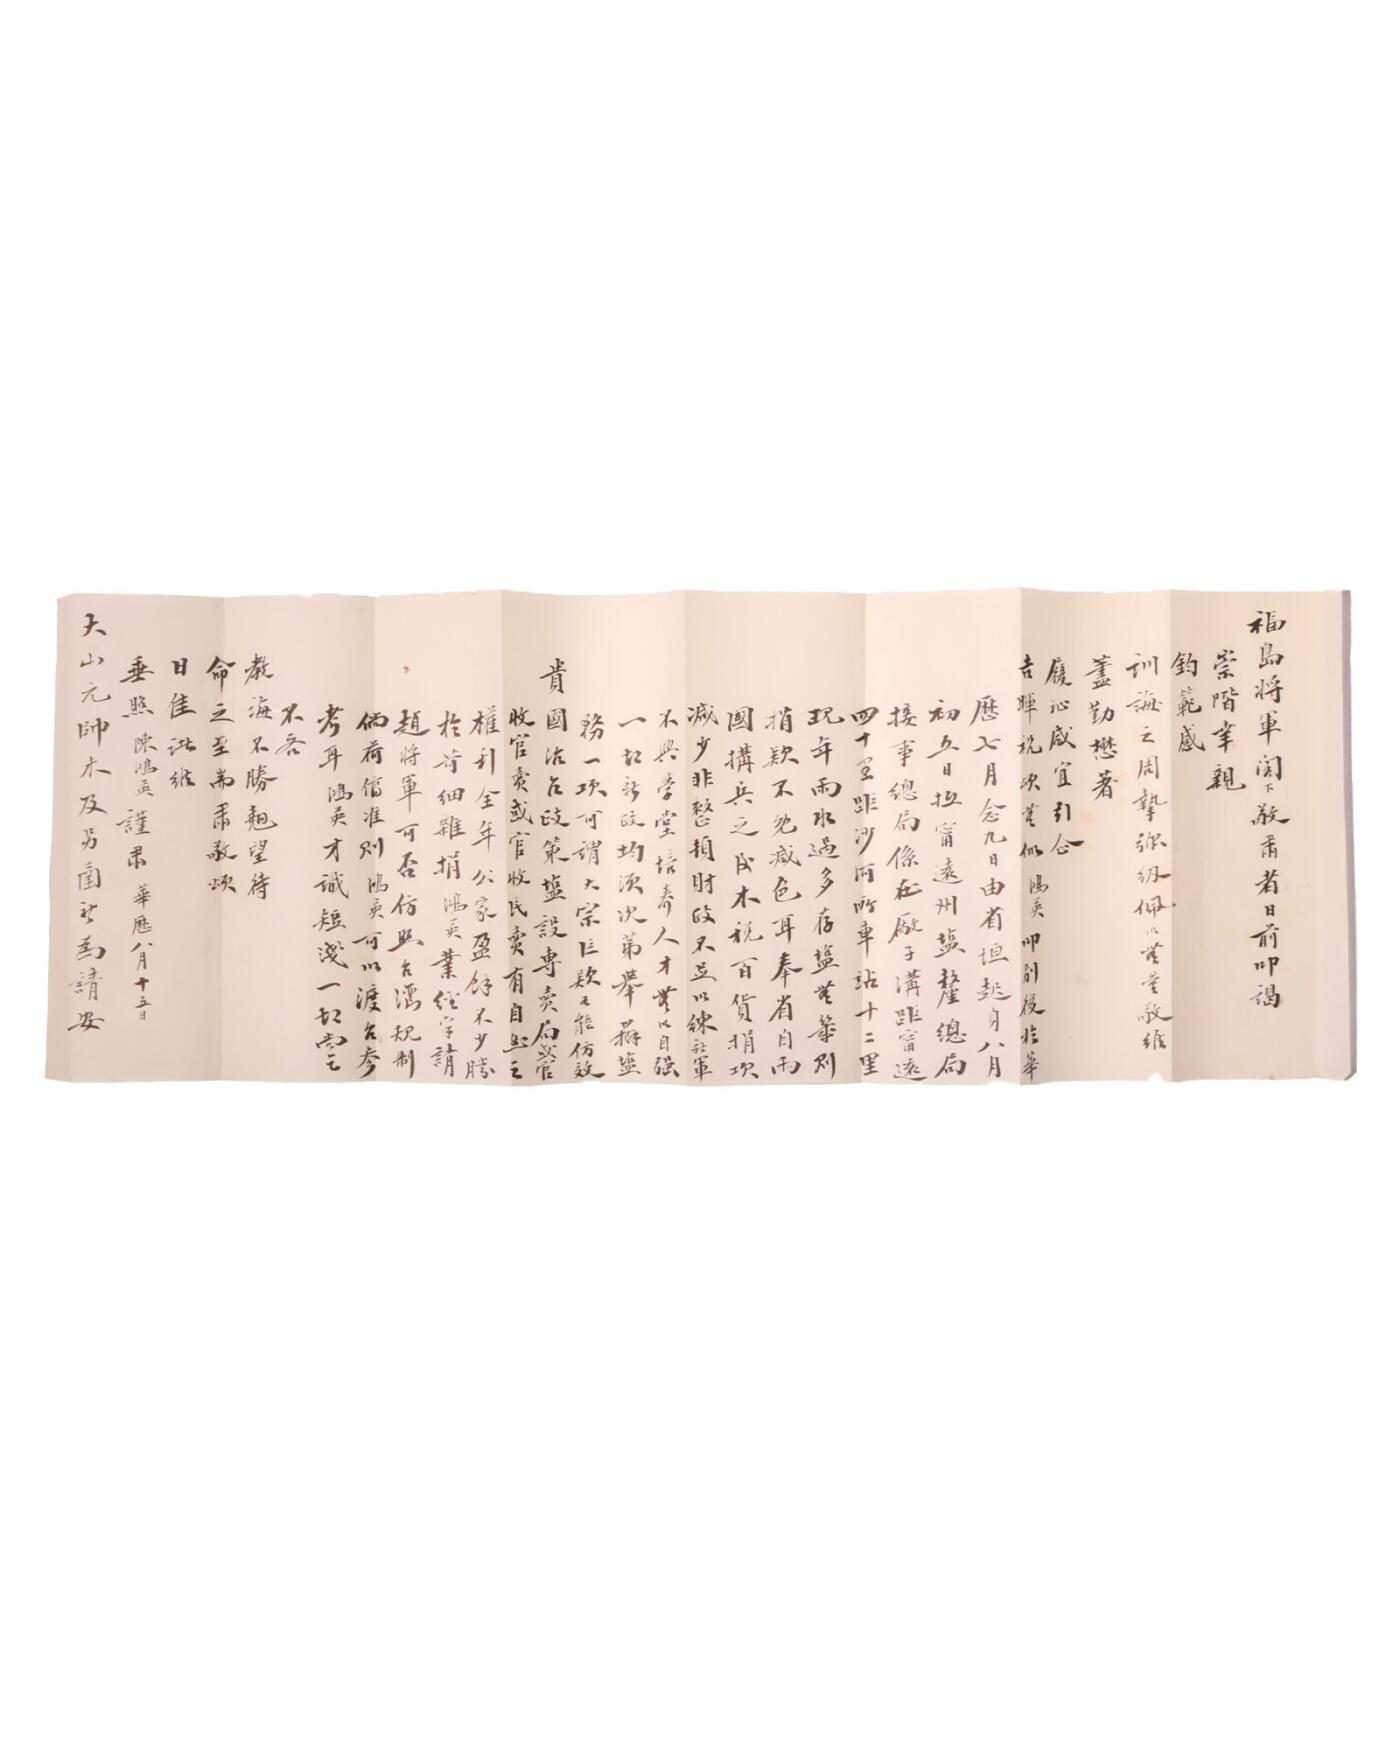 福島將軍閣下敬肅者日前叩謁
崇階幸親
鈞範感
訓誨之周摯彌紉佩以無量敬維
藎勤懋著
履祉咸宜引企
吉暉祝頌無似鴻英叩別後於華
歷七月念九日由省垣起身八月
初五日抵甯遠州塩釐總局
接事總局係在廠子溝距甯遠
四十里距沙河所車站十二里
現年雨水過多存塩無幾則
捐欵不免減色耳奉省自兩
國搆兵之後木稅百貨捐項
減少非整頓財政不足以練新軍
不興學堂培養人才無以自强
一切新政均須次第舉辦塩
務一項可謂大宗巨欵又能仿效
貴國治台政策塩設專賣局或官
收官賣或官收民賣有自然之
權利全年公家盈餘不少勝
於苛細雜捐鴻英業經字請
趙將軍可否仿照台灣規制
倘荷俯准則鴻英可以渡台參
考耳鴻英才識短淺一切尚乞
不吝
教誨不勝翹望待
命之至耑肅敬頌
日佳諸維
垂照陳鴻英謹肅華歷八月十五日
大山元帥木及另函祈為請安